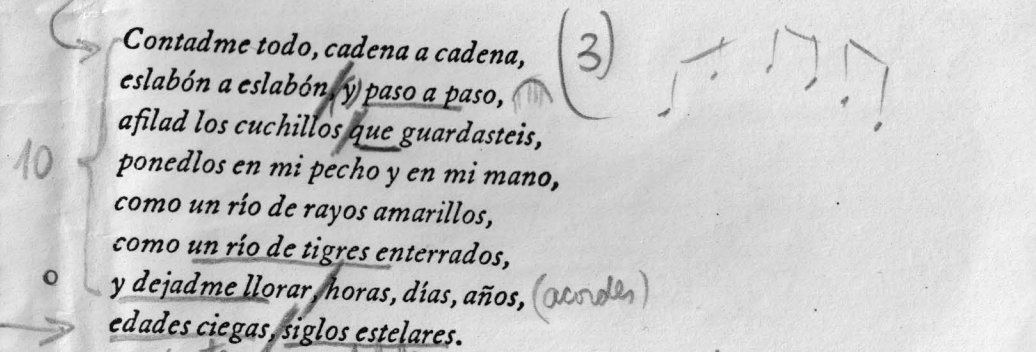 Contadme todo, cadena a cadena, (3)
eslabón a eslabón, y paso a paso,
afilad los cuchillos que guardasteis,
10
ponedlos en mi pecho y en mi mano,
como un río de rayos amarillos,
como un río de tigres enterrados,
y dejadme llorar, horas, días, años, (acordes)
edades ciegas, siglos estelares.